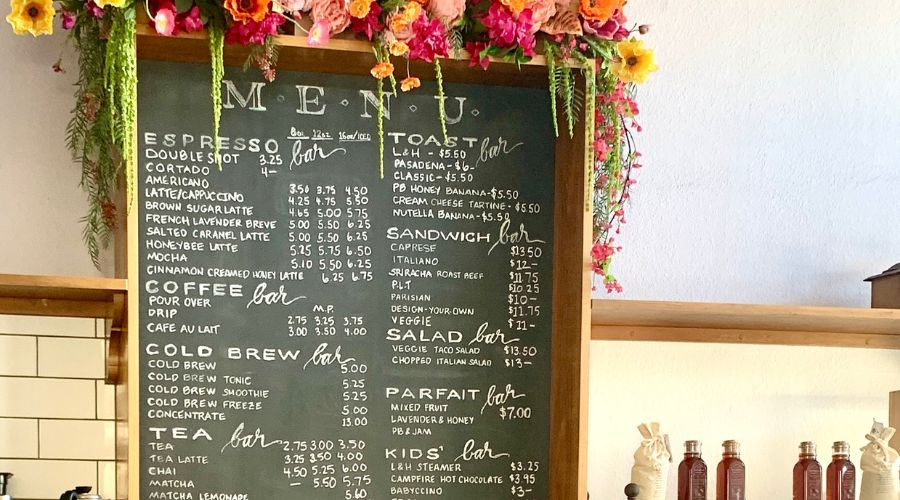 MENU
ESPRESSO bar 8oz 12oz 16oz/ICED
DOUBLE SHOT 3.25
CORTADO 4—
AMERICANO 3.50 3.75 4.50
LATTE/CAPPUCCINO 4.25 4.75 5.50
BROWN SUGAR LATTE 4.65 5.00 5.75
FRENCH LAVENDER BREVE 5.00 5.50 6.25
SALTED CARAMEL LATTE 5.00 5.50 6.25
HONEYBEE LATTE 5.25 5.75 6.50
MOCHA 5.10 5.50 6.25
CINNAMON CREAMED HONEY LATTE 6.25 6.75
COFFEE bar
POUR OVER M.P.
DRIP 2.75 3.25 3.75
CAFE AU LAIT 3.00 3.50 4.00
COLD BREW bar
COLD BREW 5.00
COLD BREW TONIC 5.25
COLD BREW SMOOTHIE 5.25
COLD BREW FREEZE 5.00
CONCENTRATE 13.00
TEA bar
TEA 2.75 3.00 3.50
TEA LATTE 3.25 3.50 4.00
CHAI 4.50 5.25 6.00
MATCHA — 5.50 5.75
MATCHA LEMONADE 5.60
TOAST bar
L&H - $5.50
PASADENA - $6-
CLASSIC - $5.50
PB HONEY BANANA - $5.50
CREAM CHEESE TARTINE - $5.50
NUTELLA BANANA - $5.50
SANDWICH bar
CAPRESE $13.50
ITALIANO $12—
SRIRACHA ROAST BEEF $11.75
P.L.T $10.25
PARISIAN $10—
DESIGN-YOUR-OWN $11.75
VEGGIE $11—
SALAD bar
VEGGIE TACO SALAD $13.50
CHOPPED ITALIAN SALAD $13—
PARFAIT bar
MIXED FRUIT $7.00
LAVENDER & HONEY
PB & JAM
KIDS' bar
L&H STEAMER $3.25
CAMPFIRE HOT CHOCOLATE $3.95
BABYCCINO $3—